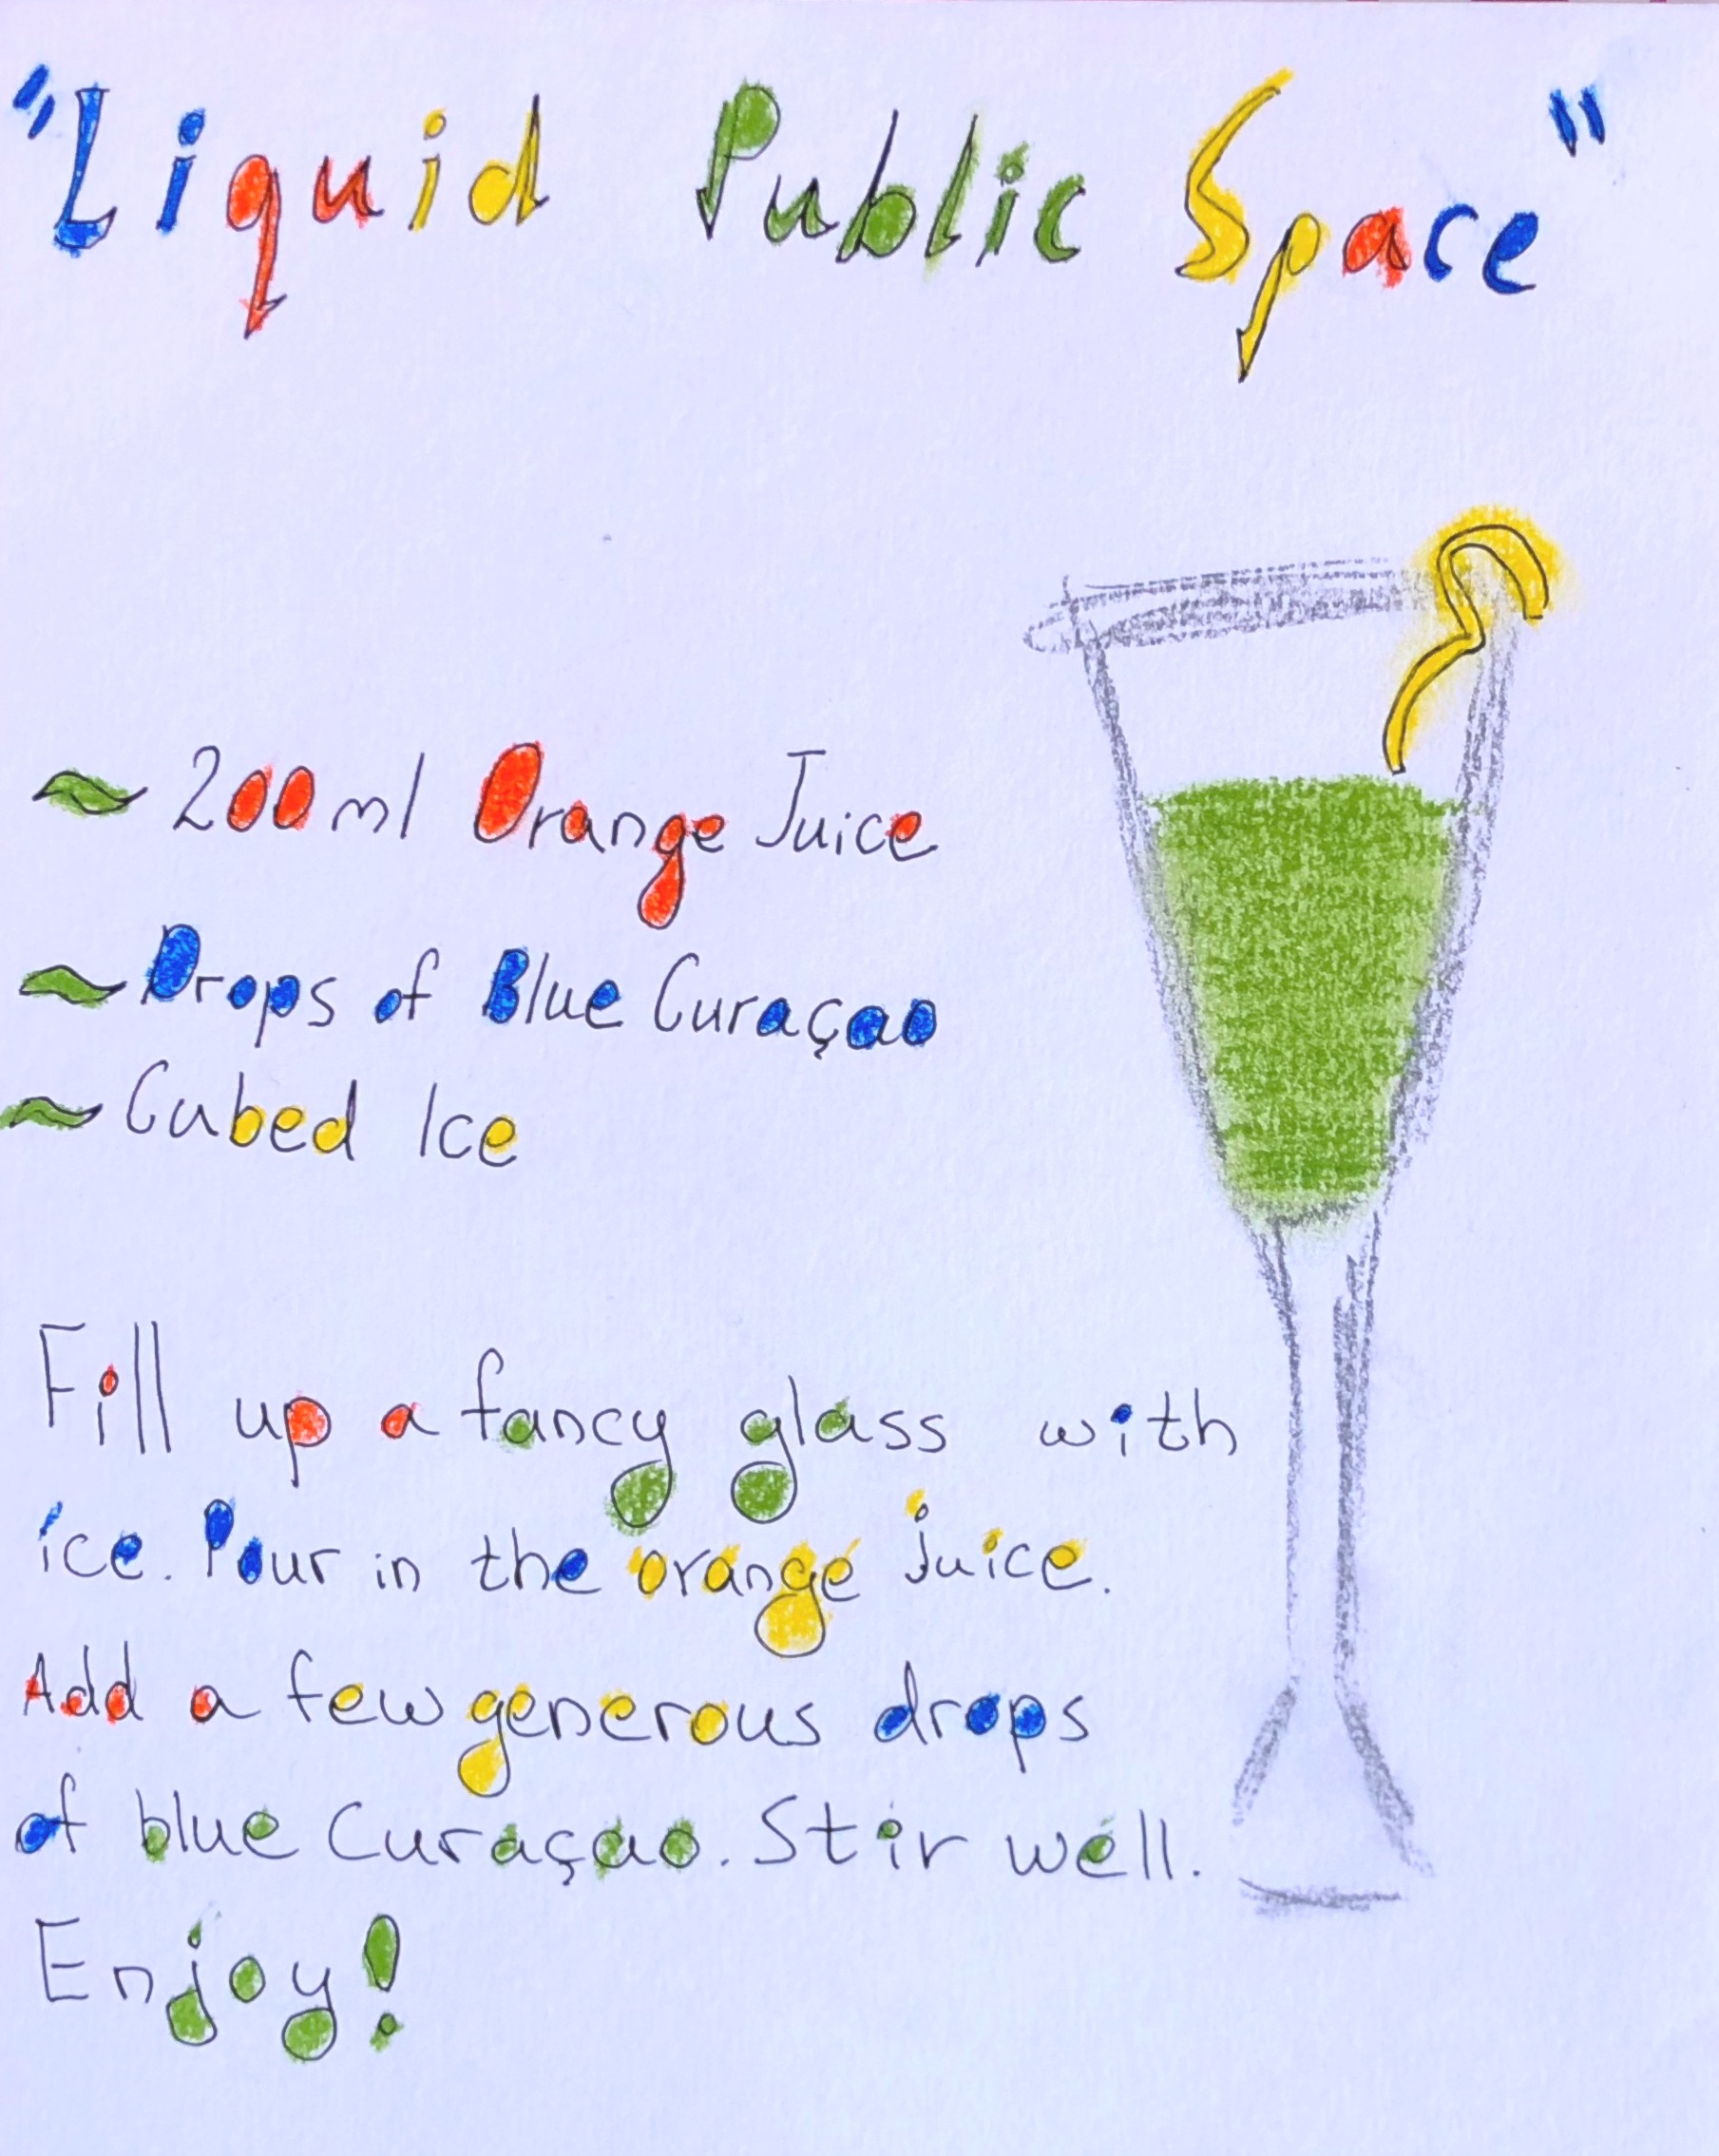 "Liquid Public Space"
~ 200ml Orange Juice
~ Drops of Blue Curaçao
~ Cubed Ice
Fill up a fancy glass with
ice. Pour in the orange juice.
Add a few generous drops
of blue Curaçao. Stir well.
Enjoy!